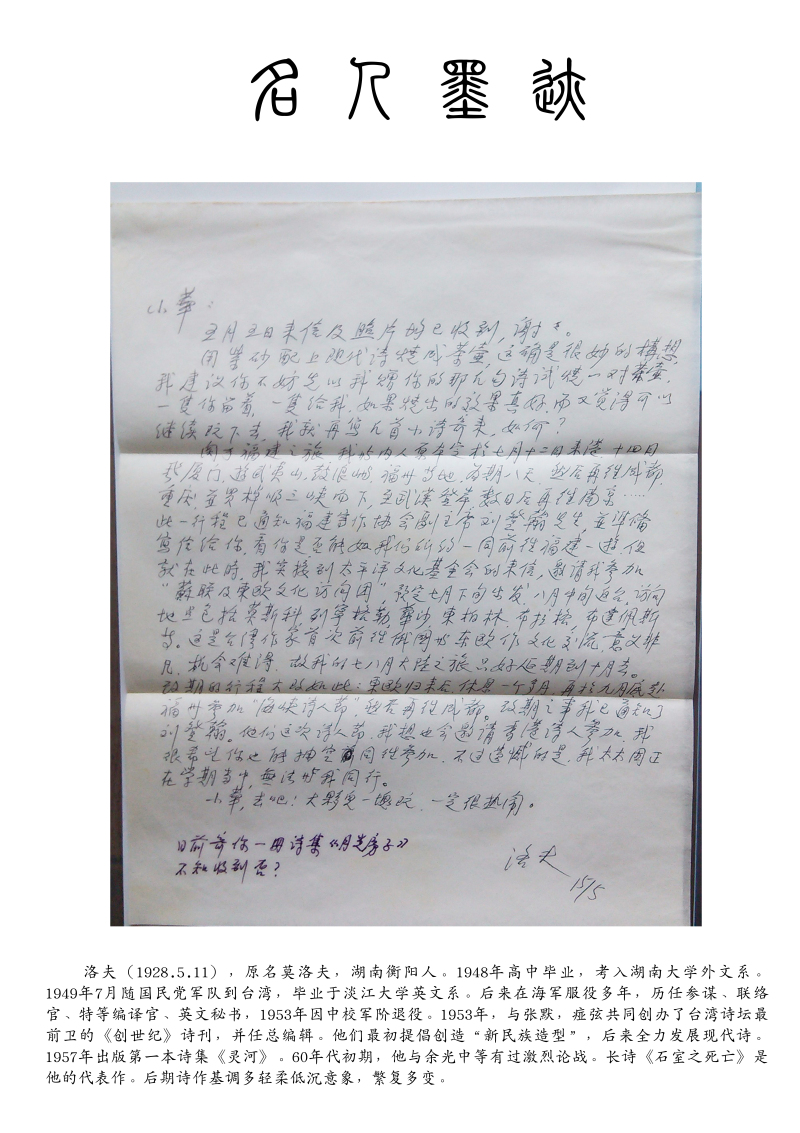 名人墨迹
小華：
五月五日来信及照片均已收到，謝々。
用紫砂配上现代诗烧成茶壶，这确是很妙的構想，
我建议你不妨先以我赠你的那几句诗试烧一对茶壶，
一隻你留着，一隻给我，如果烧出的效果真好，而又觉得可以
继续玩下去，我就再写几首小诗寄来，如何？
関于福建之旅，我的内人原本定於七月十二日来港，十四日
飛厦门，遊武夷山，鼓浪屿，福州等地，为期八天，然后再往成都，
重庆，並買棹顺三峡而下，至武漢登岸数日后再往南京……
此一行程已通知福建省作协会副主席刘登翰先生，並準備
寫信给你，看你是否能如我们所约一同前往福建一遊，但
就在此时，我突接到太平洋文化基金会的来信，邀请我参加
“蘇联及東欧文化访问团”，预定七月下旬出发，八月中旬返台，访问
地点包括莫斯科，列寧格勒，華沙，東柏林，布拉格，布達佩斯
等。这是台湾作家首次前往俄国与东欧作文化交流，意义非
凡，机会难得，故我的七八月大陆之旅只好延期到十月去。
改期的行程大致如此：東欧归来后休息一个多月，再於九月底赴
福州参加“海峡诗人节”，然后再往成都。改期之事我已通知了
刘登翰。他们这次诗人节，我想也会邀请香港诗人参加，我
很希望你也能抽空前同往参加，不过遗憾的是，我太太因正
在学期当中，無法与我同行。
小華，去吧！大夥兒一塊玩，一定很热闹。
洛夫
15/5
日前寄你一冊诗集《月光房子》
不知收到否？
洛夫（1928.5.11），原名莫洛夫，湖南衡阳人。1948年高中毕业，考入湖南大学外文系。
1949年7月随国民党军队到台湾，毕业于淡江大学英文系。后来在海军服役多年，历任参谋、联络
官、特等编译官、英文秘书，1953年因中校军阶退役。1953年，与张默，痖弦共同创办了台湾诗坛最
前卫的《创世纪》诗刊，并任总编辑。他们最初提倡创造“新民族造型”，后来全力发展现代诗。
1957年出版第一本诗集《灵河》。60年代初期，他与余光中等有过激烈论战。长诗《石室之死亡》是
他的代表作。后期诗作基调多轻柔低沉意象，繁复多变。